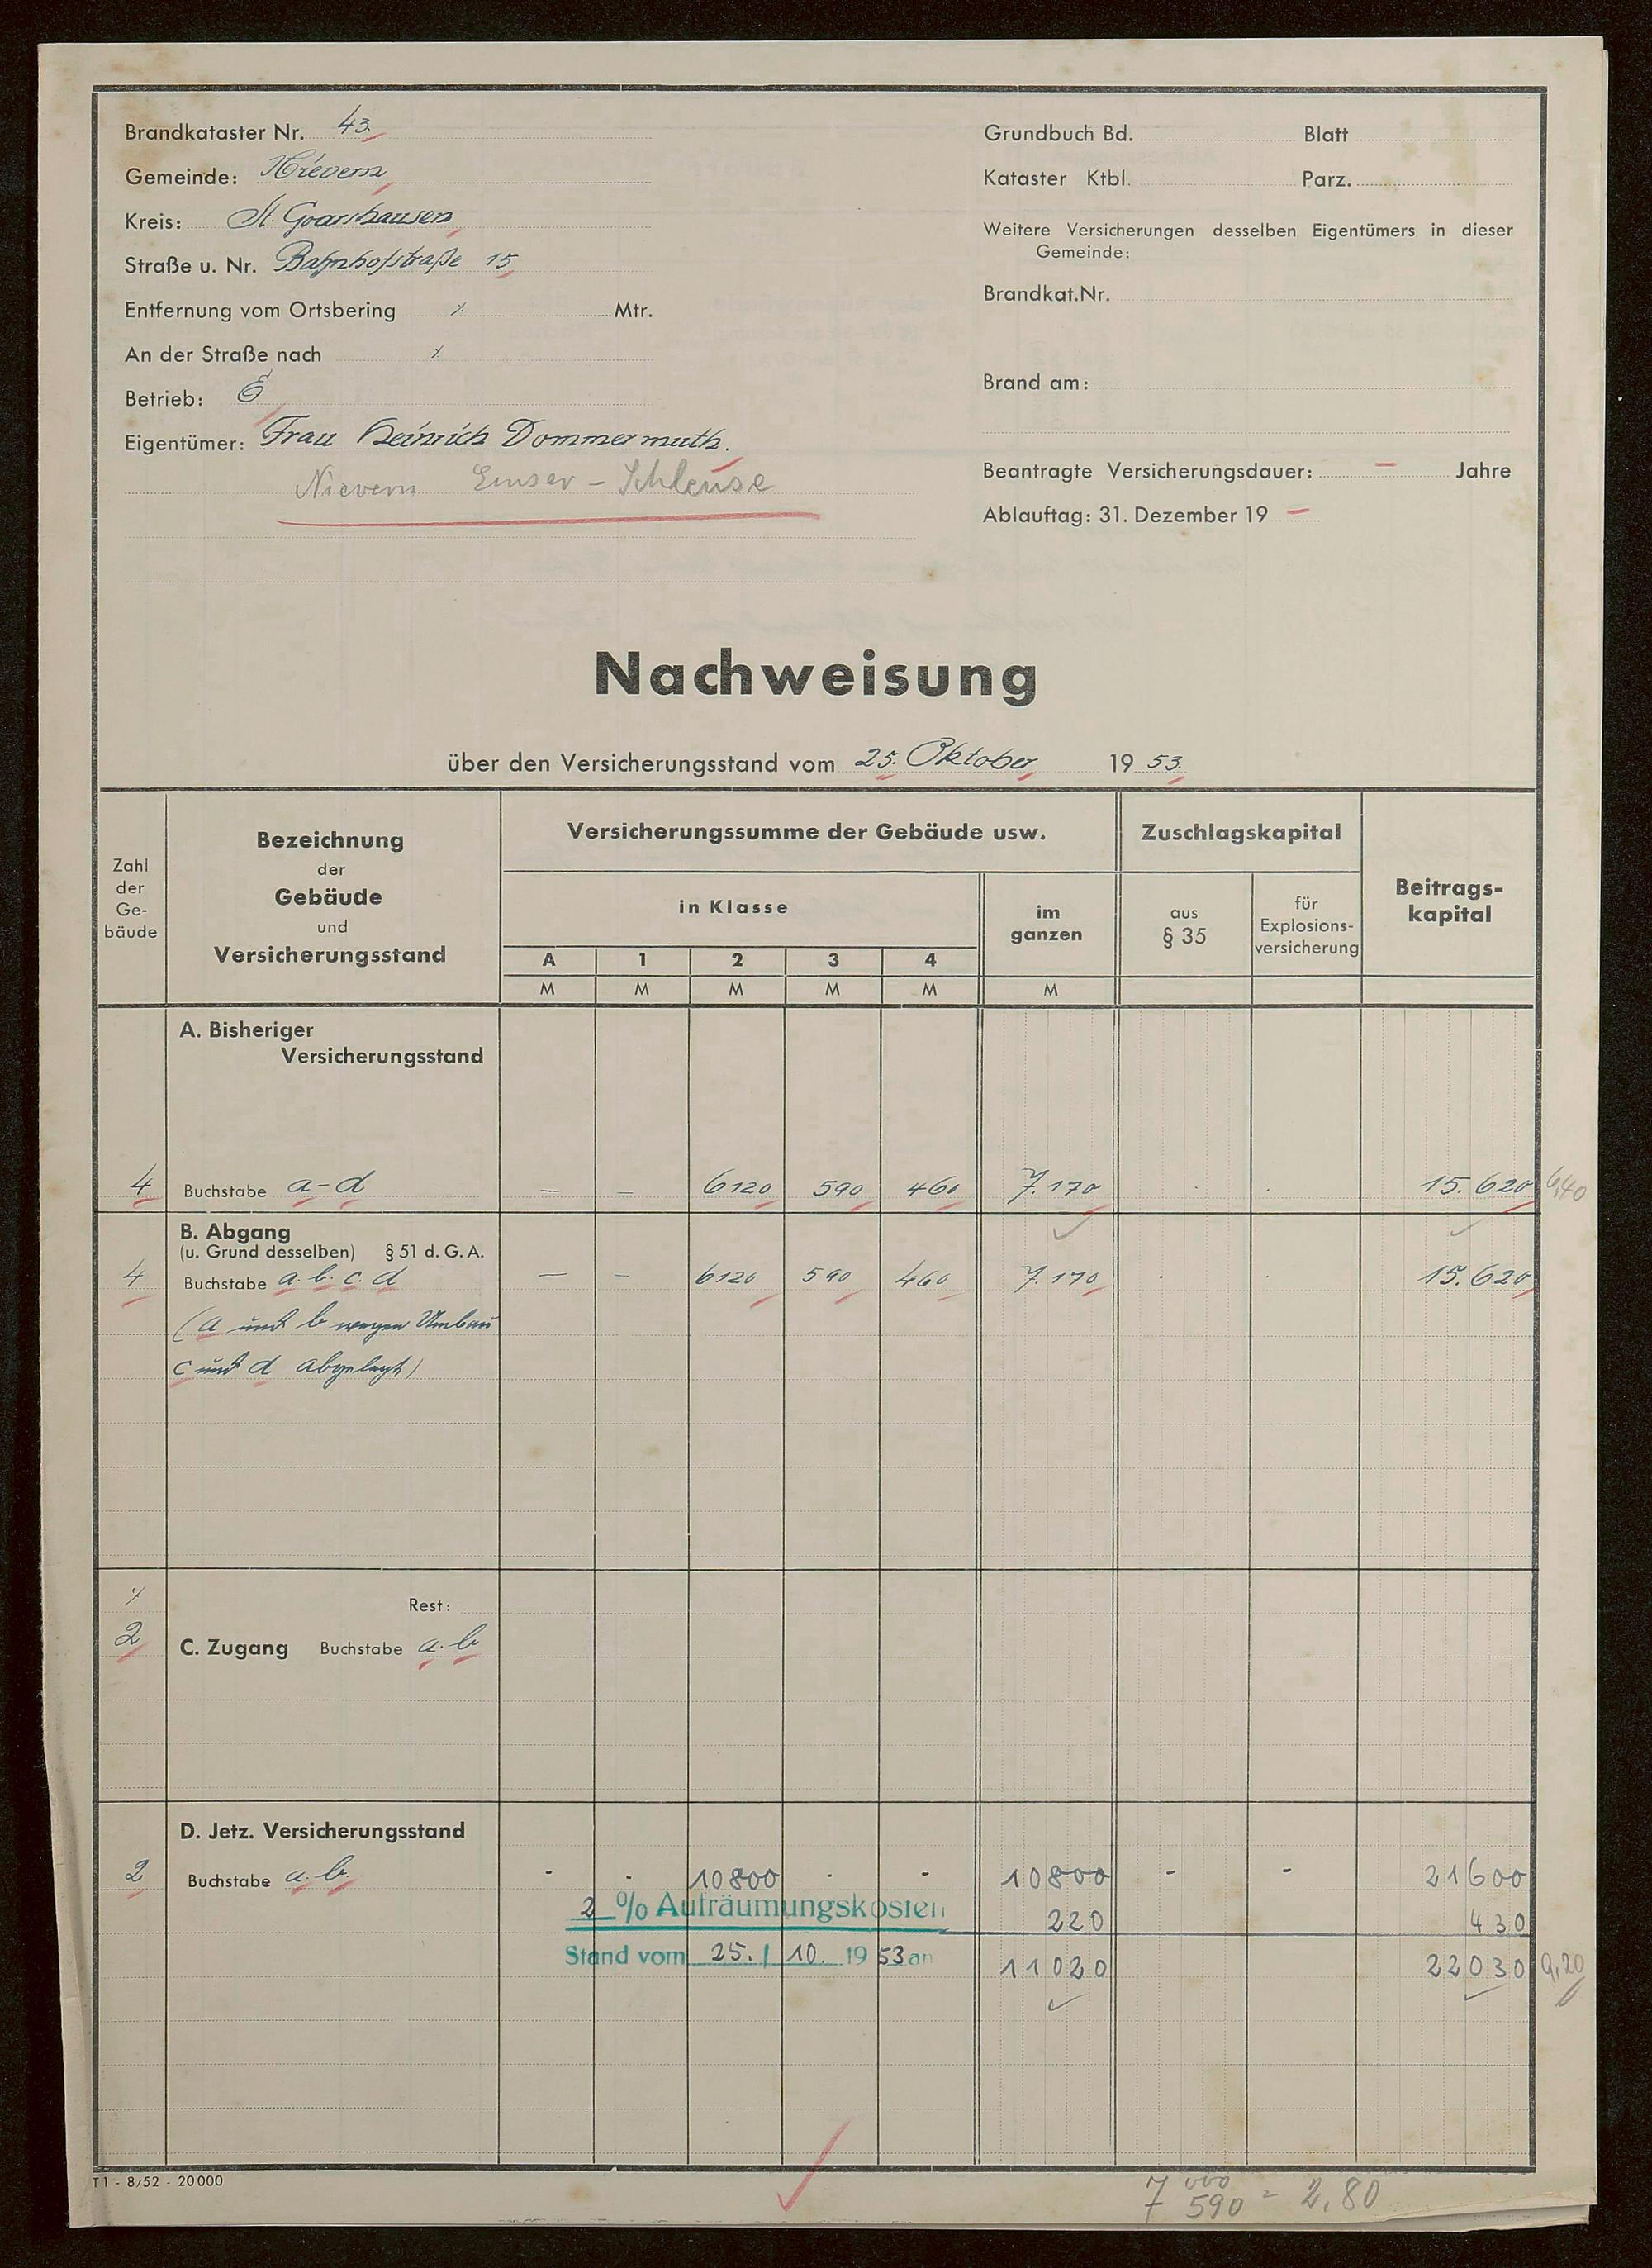 Brandkataster Nr. 43.
Gemeinde: Nievern
Kreis: St. Goarshausen
Straße u. Nr. Bahnhofstraße 15
Entfernung vom Ortsbering ⁒ Mtr.
An der Straße nach ⁒
Betrieb:
Eigentümer: Frau Heinrich Dommermuth.
Nievern Emser-Schleuse
Grundbuch Bd. Blatt
Kataster Ktbl. Parz.
Weitere Versicherungen desselben Eigentümers in dieser
Gemeinde:
Brandkat.Nr.
Brand am:
Beantragte Versicherungsdauer: – Jahre
Ablauftag: 31. Dezember 19 –
Nachweisung
über den Versicherungsstand vom 25. Oktober 19 53.
Zahl
der
Ge-
bäude
Bezeichnung
der
Gebäude
und
Versicherungsstand
Versicherungssumme der Gebäude usw.
in Klasse
A 1 2 3 4
M M M M M
im
ganzen
M
Zuschlagskapital
aus
§ 35
für
Explosions-
versicherung
Beitrags-
kapital
A. Bisheriger
Versicherungsstand
4 Buchstabe a-d – – 6120 590 460 7.170 · · 15.620 6,40
B. Abgang
(u. Grund desselben) § 51 d. G. A.
4 Buchstabe a. b. c. d – – 6120 590 460 7.170 · · 15.620
(a und b wegen Umbau
c und d abgelegt)
⁒ Rest:
2 C. Zugang Buchstabe a. b
D. Jetz. Versicherungsstand
2 Buchstabe a. b. - - 10800 - - 10800 - - 21600
2 % Aufräumungskosten 220 430
Stand vom 25. / 10. 19 53 an 11020 22030 9,20
T 1 - 8/52 - 20000
7 000
7 590 = 2,80